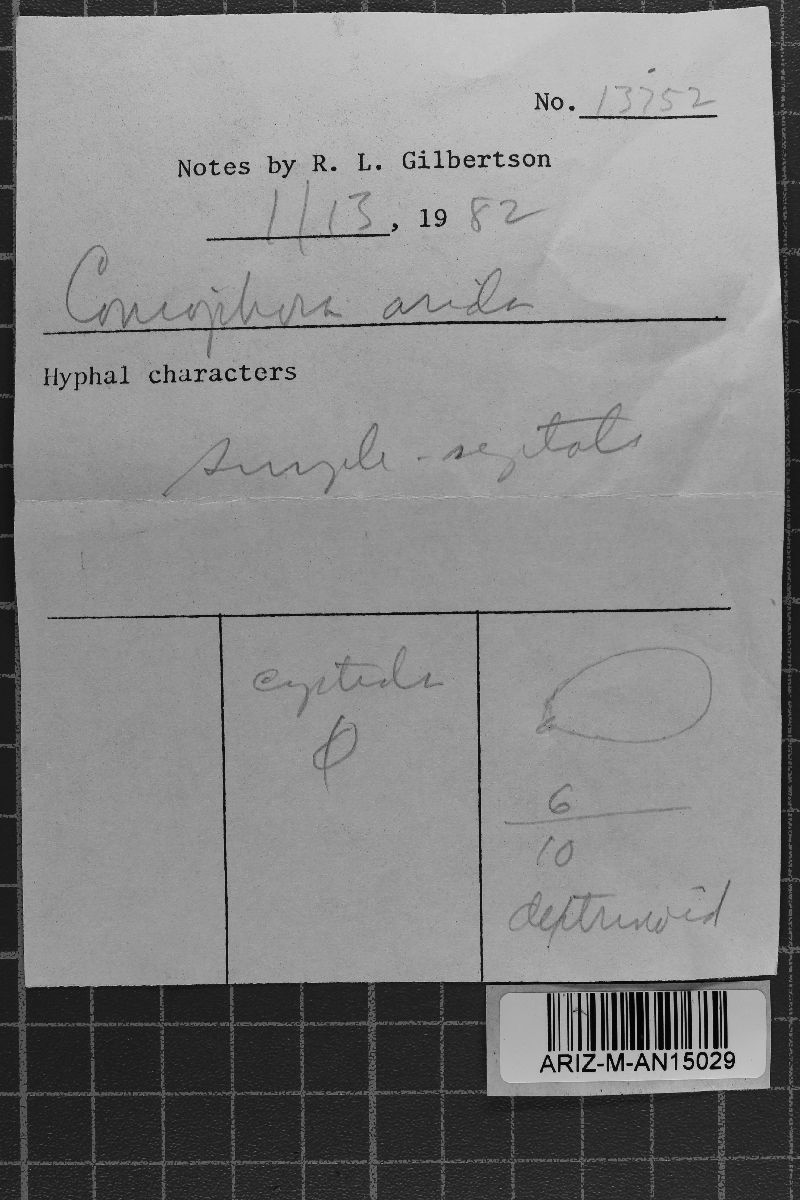 No. 13752
Notes by R. L. Gilbertson
1/13, 19 82
Coniophora arida
Hyphal characters
simple-septate
cystidia
φ
6
10
dextrinoid
ARIZ-M-AN15029